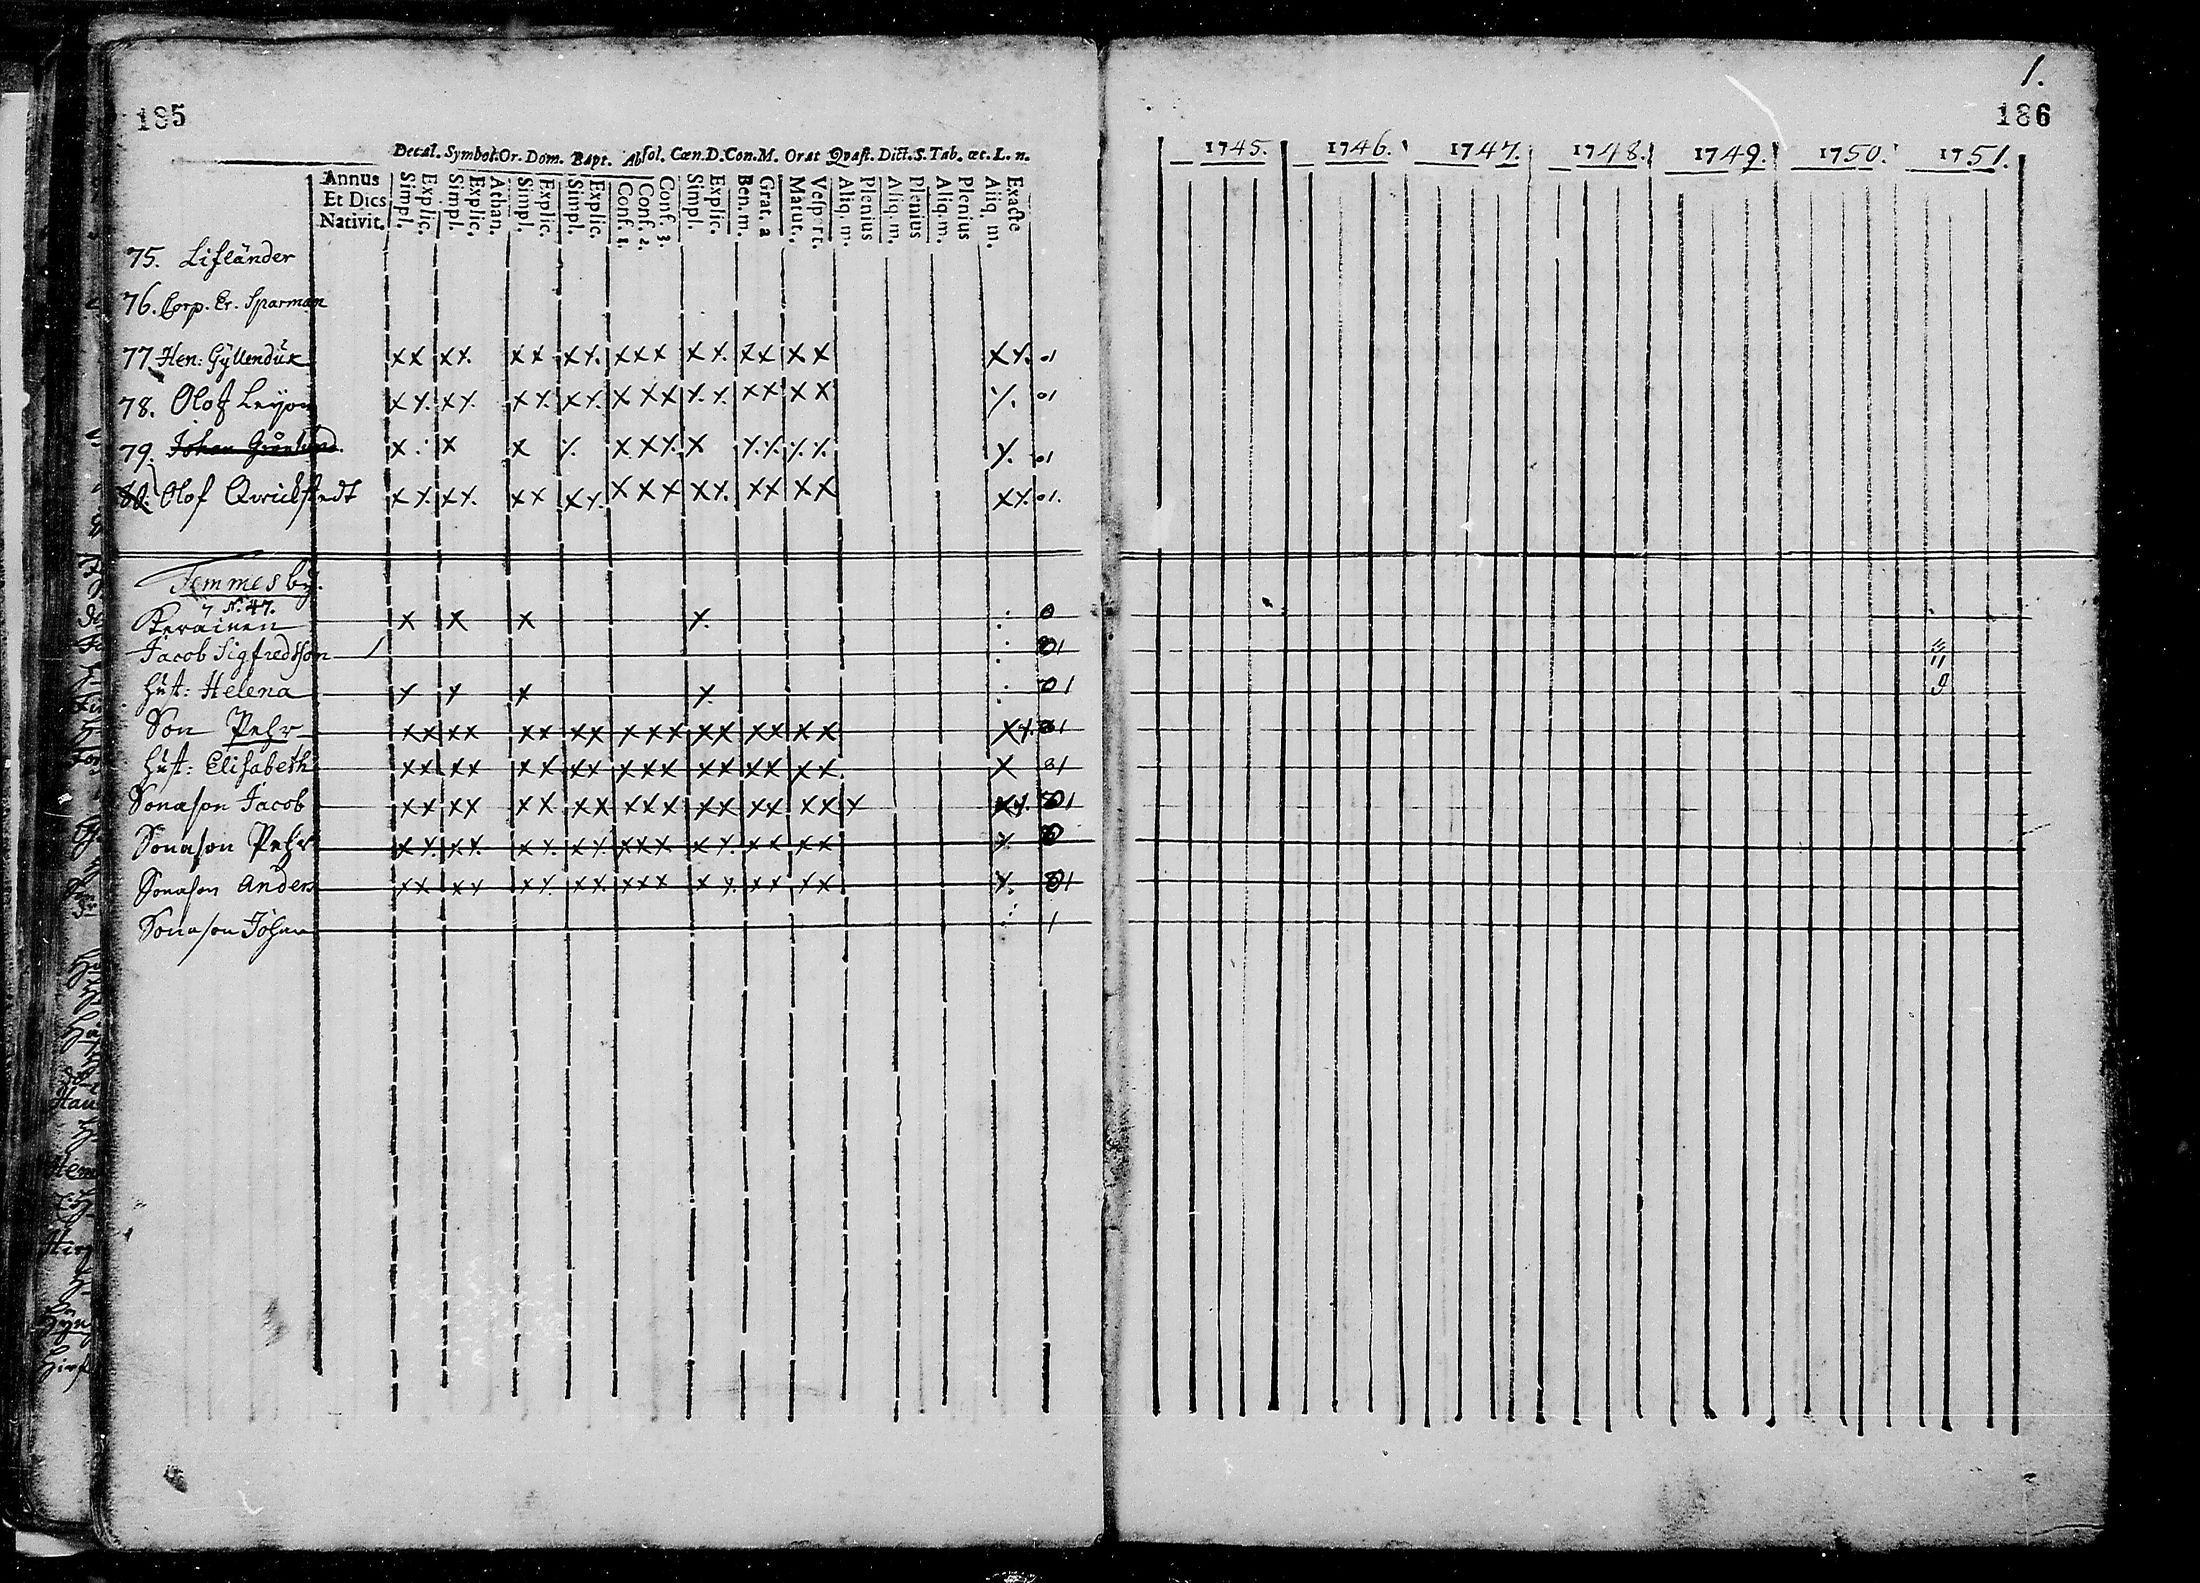 185
Decal. Symbol. Or. Dom. Bapt. Absol. Cœn. D. Con. M. Orat Qvæst. Dict. S. Tab. œc. L. n.
Annus
Et Dies
Nativit.
Simpl. Explic. Simpl. Explic. Athan. Simpl. Explic. Simpl. Explic. Conf. 1. Conf. 2. Conf. 3. Simpl. Explic. Ben. m. Grat. a Matut. Vespert. Aliq. m. Plenius Aliq. m. Plenius Aliq. m. Plenius Aliq. m. Exacte
75. Lifländer
76. Corp. Er. Sparman
77 Hen: Gyllenduk x x x x. x x x x. x x x x x. x x x x x x. 01
78. Olof Leyon x x. x x. x x. x x. x x x x. x. x x x x x. 01
79. Johan x x x x. x x x. x x. x. x. x. x. 01
80. Olof Qwickstedt x x. x x. x x x x. x x x x x. x x x x x x. 01.
Temmes by.
N:o 47.
Kerainen x x x x. 0
Jacob Sigfredsson 01
Hust: Helena x x x x. 01
Son Pehr x x x x x x x x x x x x x x x x x x x. 01
Hust: Elisabeth x x x x x x x x x x x x x x x x x x 01
Sonason Jacob x x x x x x x x x x x x x x x x x x x x. 01
Sonason Pehr x x. x x. x x. x x. x x x x x. x x x x x 0
Sonason Anders x x x x x x. x x. x x x x x. x x x x x. 01
Sonason Johan 1
1.
186
1745. 1746. 1747. 1748. 1749. 1750. 1751.
11
9